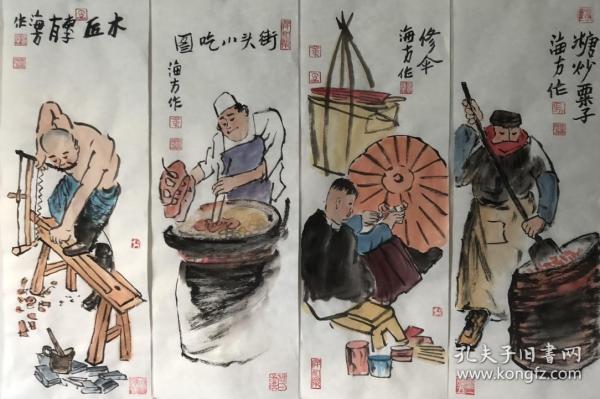 木匠
海方
作
街头小吃图
海方作
修伞
海方作
糖炒栗子
海方作
孔夫子旧书网
www.kongfz.com